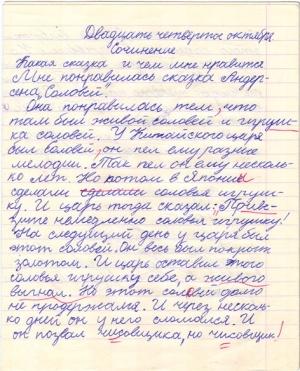 Двадцать четвертое октября
Сочинение
Какая сказка и чем мне нравится
Мне понравилась сказка Андер-
сена, Соловей".
Она понравилась, тем, что
там был живой соловей и игруш-
ка соловей. У Китайского царя
был соловей, он пел ему разные
мелодии. Так пел он ему несколь-
ко лет. Но потом в Японии
сделали сделали соловья игруш-
ку. И царь тогда сказал: „Приве-
зите немедленно соловья игрушку!
На следущий день у царя был
этот соловей. Он весь был покрыт
золотом. И царь оставил этого
соловья игрушку себе, а живого
выгнал. Но этот соловей долго
не продержался. И через несколь-
ко дней он у него сломался. И
он позвал чисовщика, но чисовщик!